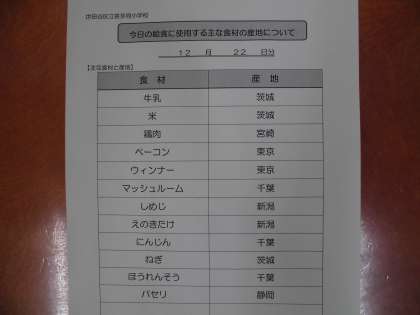 世田谷区立喜多見小学校
今日の給食に使用する主な食材の産地について
12 月 22 日分
【主な食材と産地】
食 材 産 地
牛乳 茨城
米 茨城
鶏肉 宮崎
ベーコン 東京
ウィンナー 東京
マッシュルーム 千葉
しめじ 新潟
えのきたけ 新潟
にんじん 千葉
ねぎ 茨城
ほうれんそう 千葉
パセリ 静岡